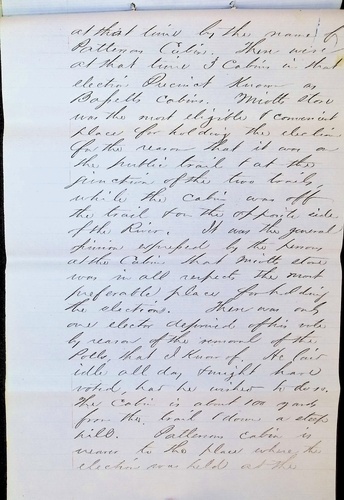 at that time by the name of
Patterson Cabin. There were
at that time 3 Cabins in that
election Precinct Known as
Bassetts cabins. Miotts store
was the most eligible & convenient
place for holding the election
for the reason that it was on
the public trail & at the
junction of the two trails,
while the cabin was off
the trail & on the opposite side
of the River. It was the general
opinion expressed by the persons
at the Cabins that Miotts store
was in all respects the most
preferable place for holding
the elections. There was only
one elector deprived of his vote
by reason of the removal of the
Polls, that I Know of. He laid
idle all day & might have
voted, had he wished to do so.
The Cabin is about 100 yards
from the trail & down a steep
hill. Patterson cabin is
nearer to the place where the
election was held at the